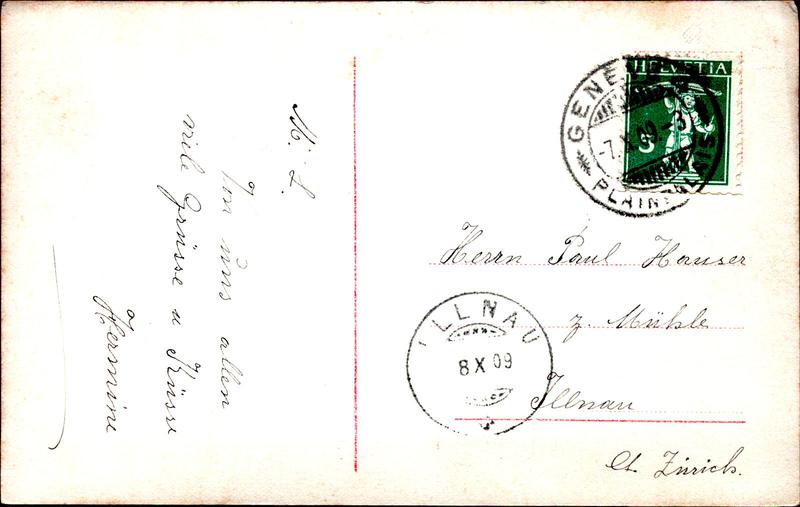 M. L.
Von uns allen
viele Grüsse u Küsse
Hermine
HELVETIA
5
GENÈVE
-7.X.09.-3
PLAINPALAIS
Herrn Paul Hauser
z. Mühle
Illnau
Ct. Zürich.
ILLNAU
8 X 09